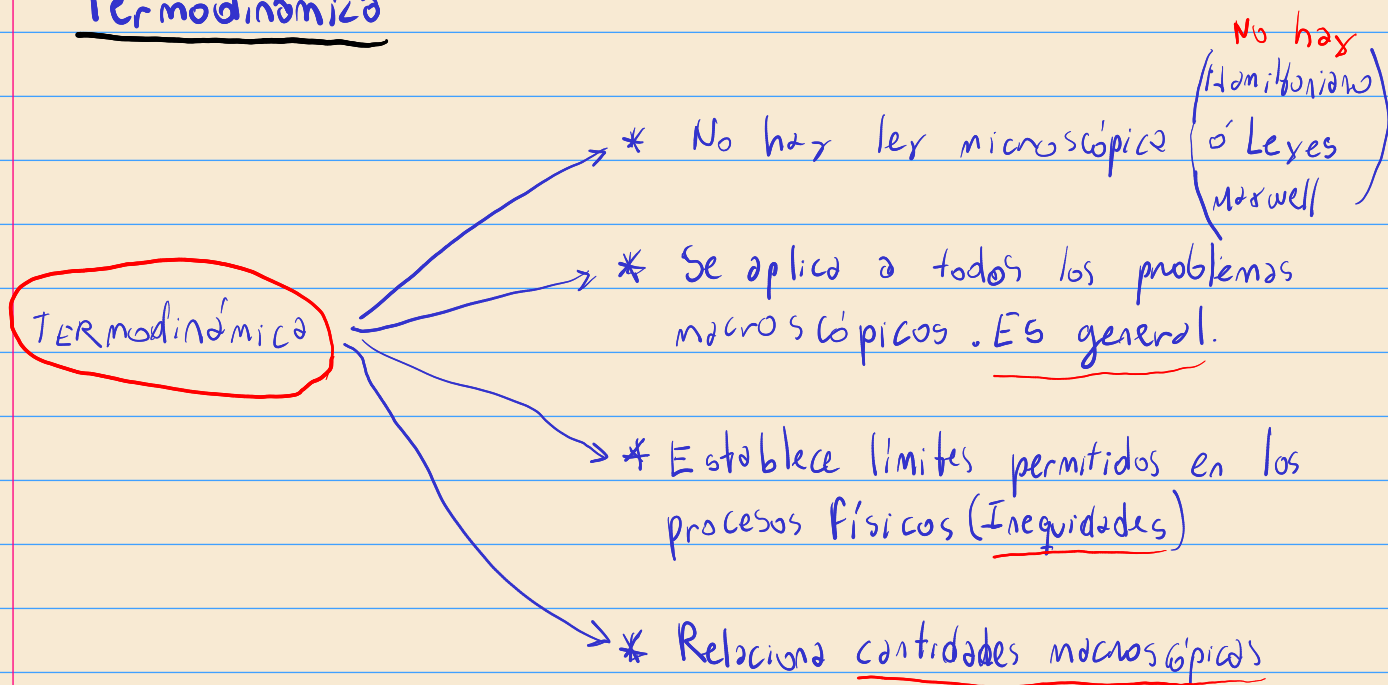 Termodinámica
No hay
* No hay ley microscópica (Hamiltoniano
ó Leyes
Maxwell)
* Se aplica a todos los problemas
macroscópicos. ES general.
TERmodinámica
* Establece límites permitidos en los
procesos físicos (Inequidades)
* Relaciona cantidades macroscópicas